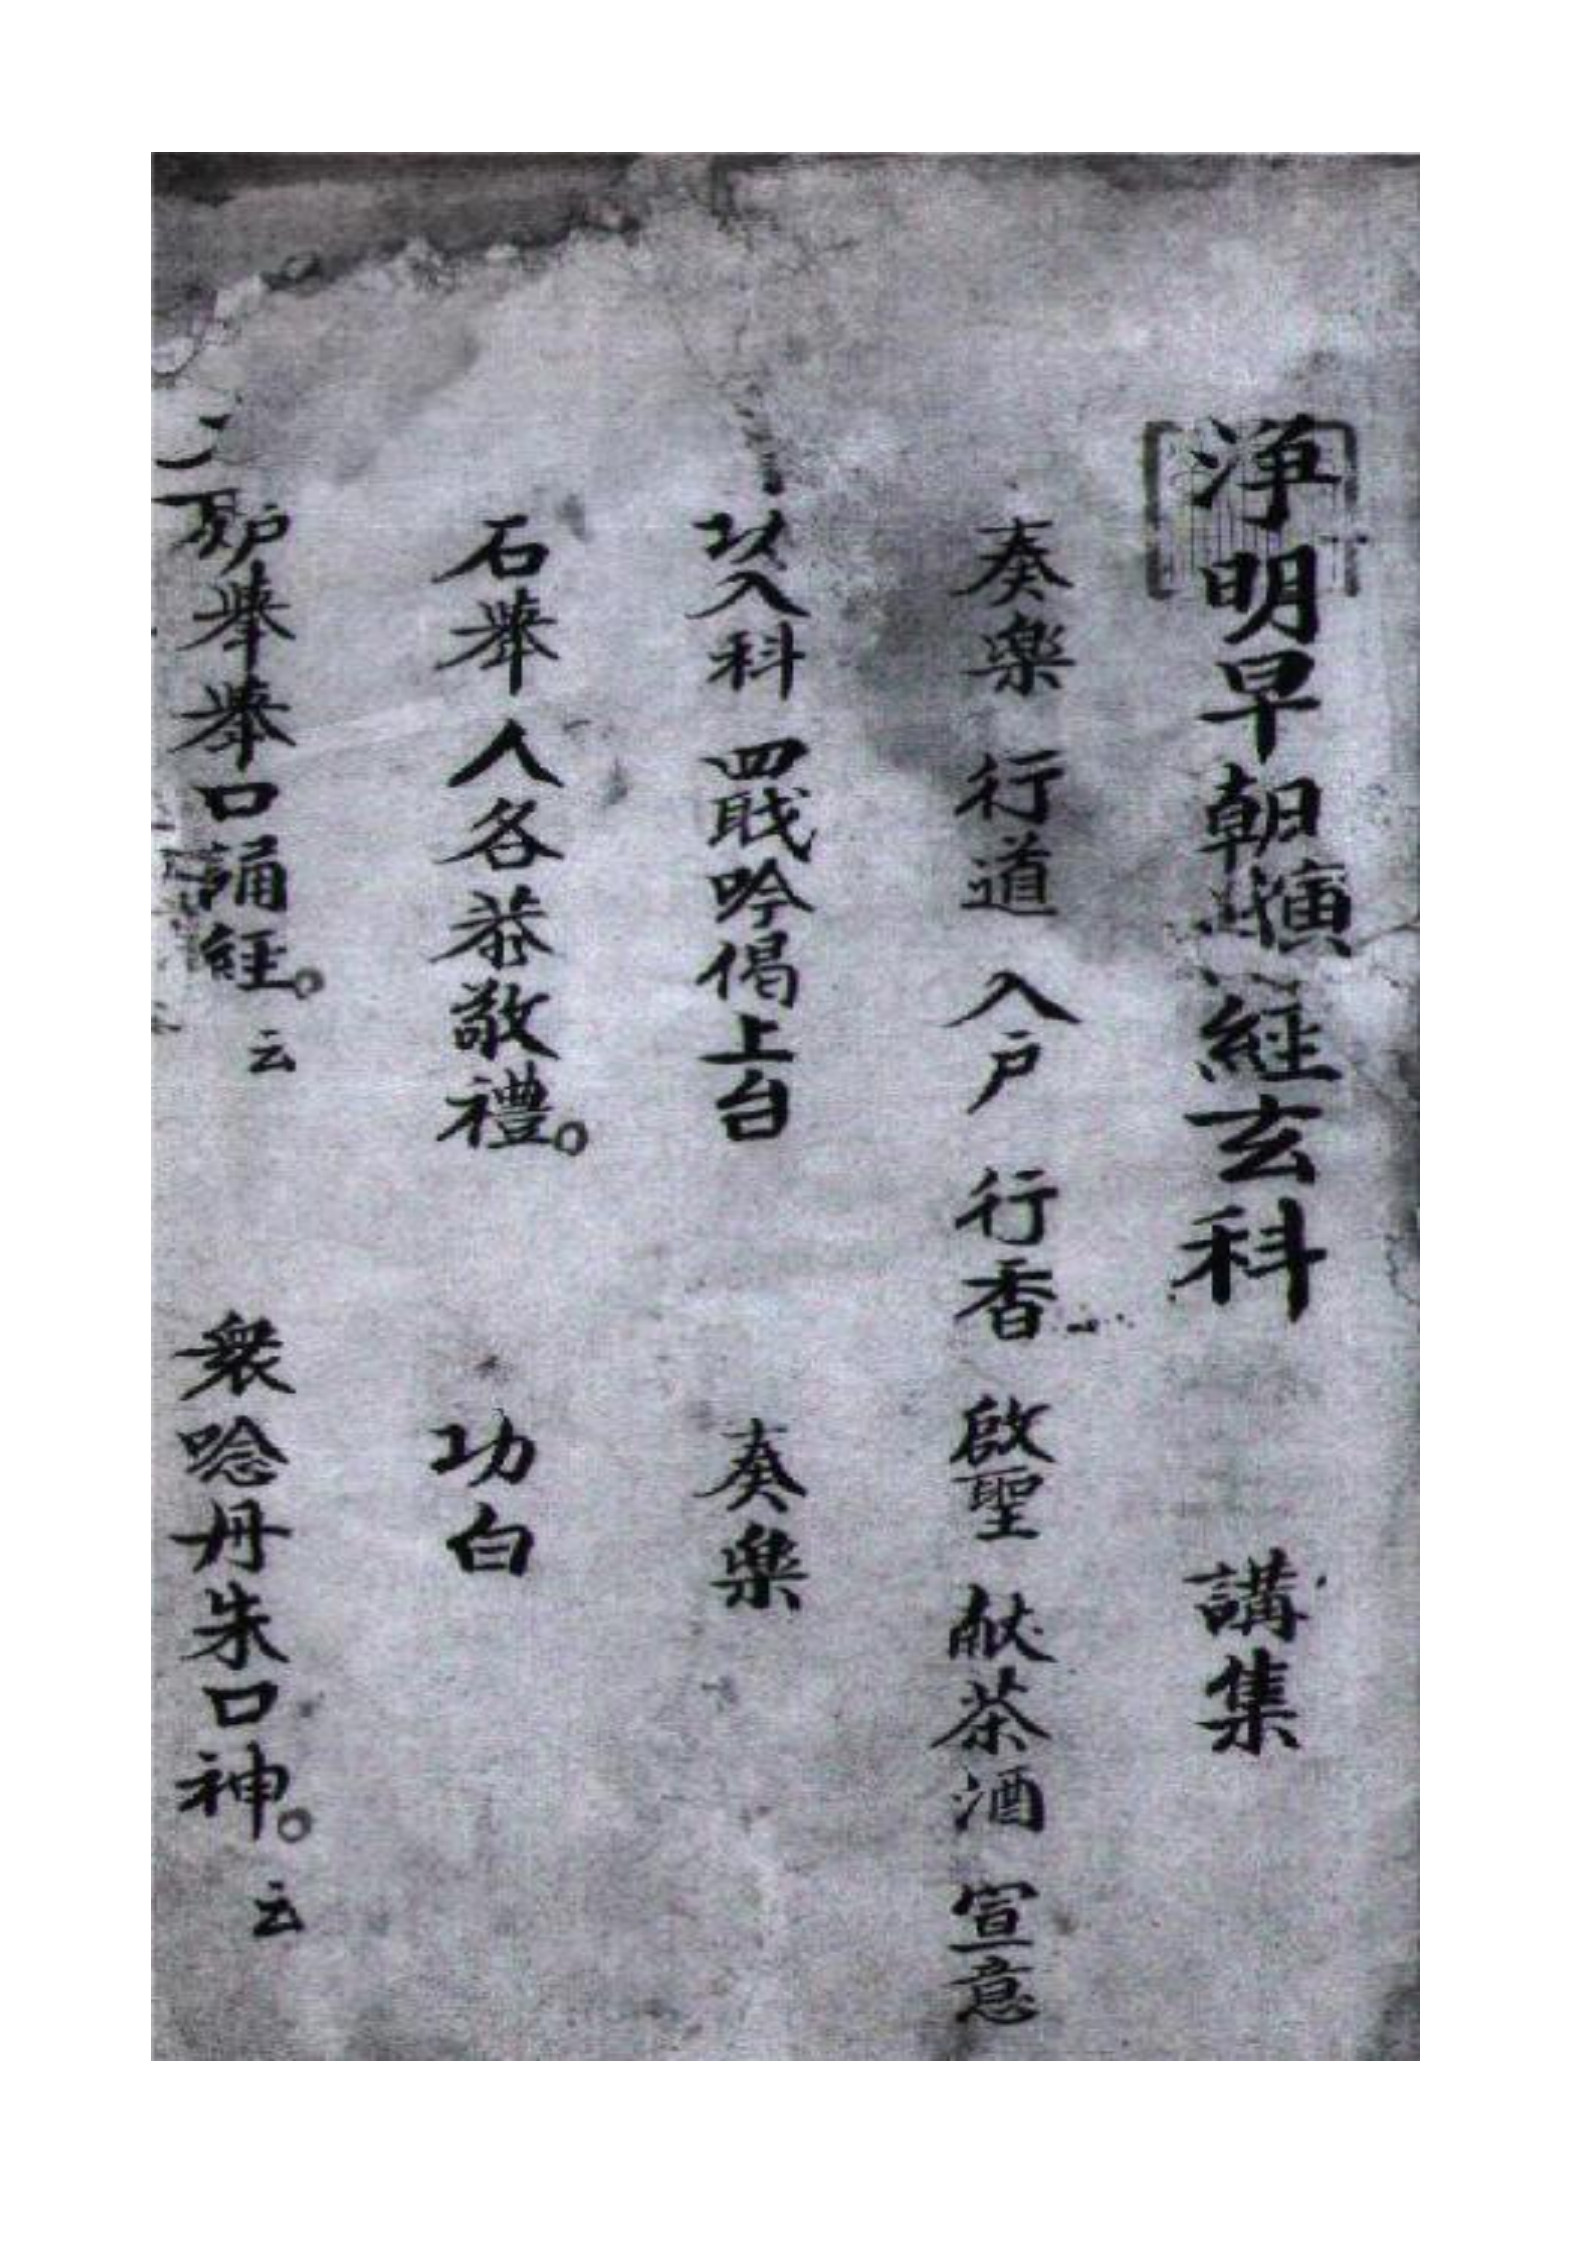 淨明早朝演経玄科 講集
奏樂 行道 入戶 行香 啟聖 献茶酒 宣意
功入科 四戝吟偈上台 奏樂
石舉 人各恭敬禮。 功白
炉舉 舉口誦経。云 衆唸丹朱口神。云